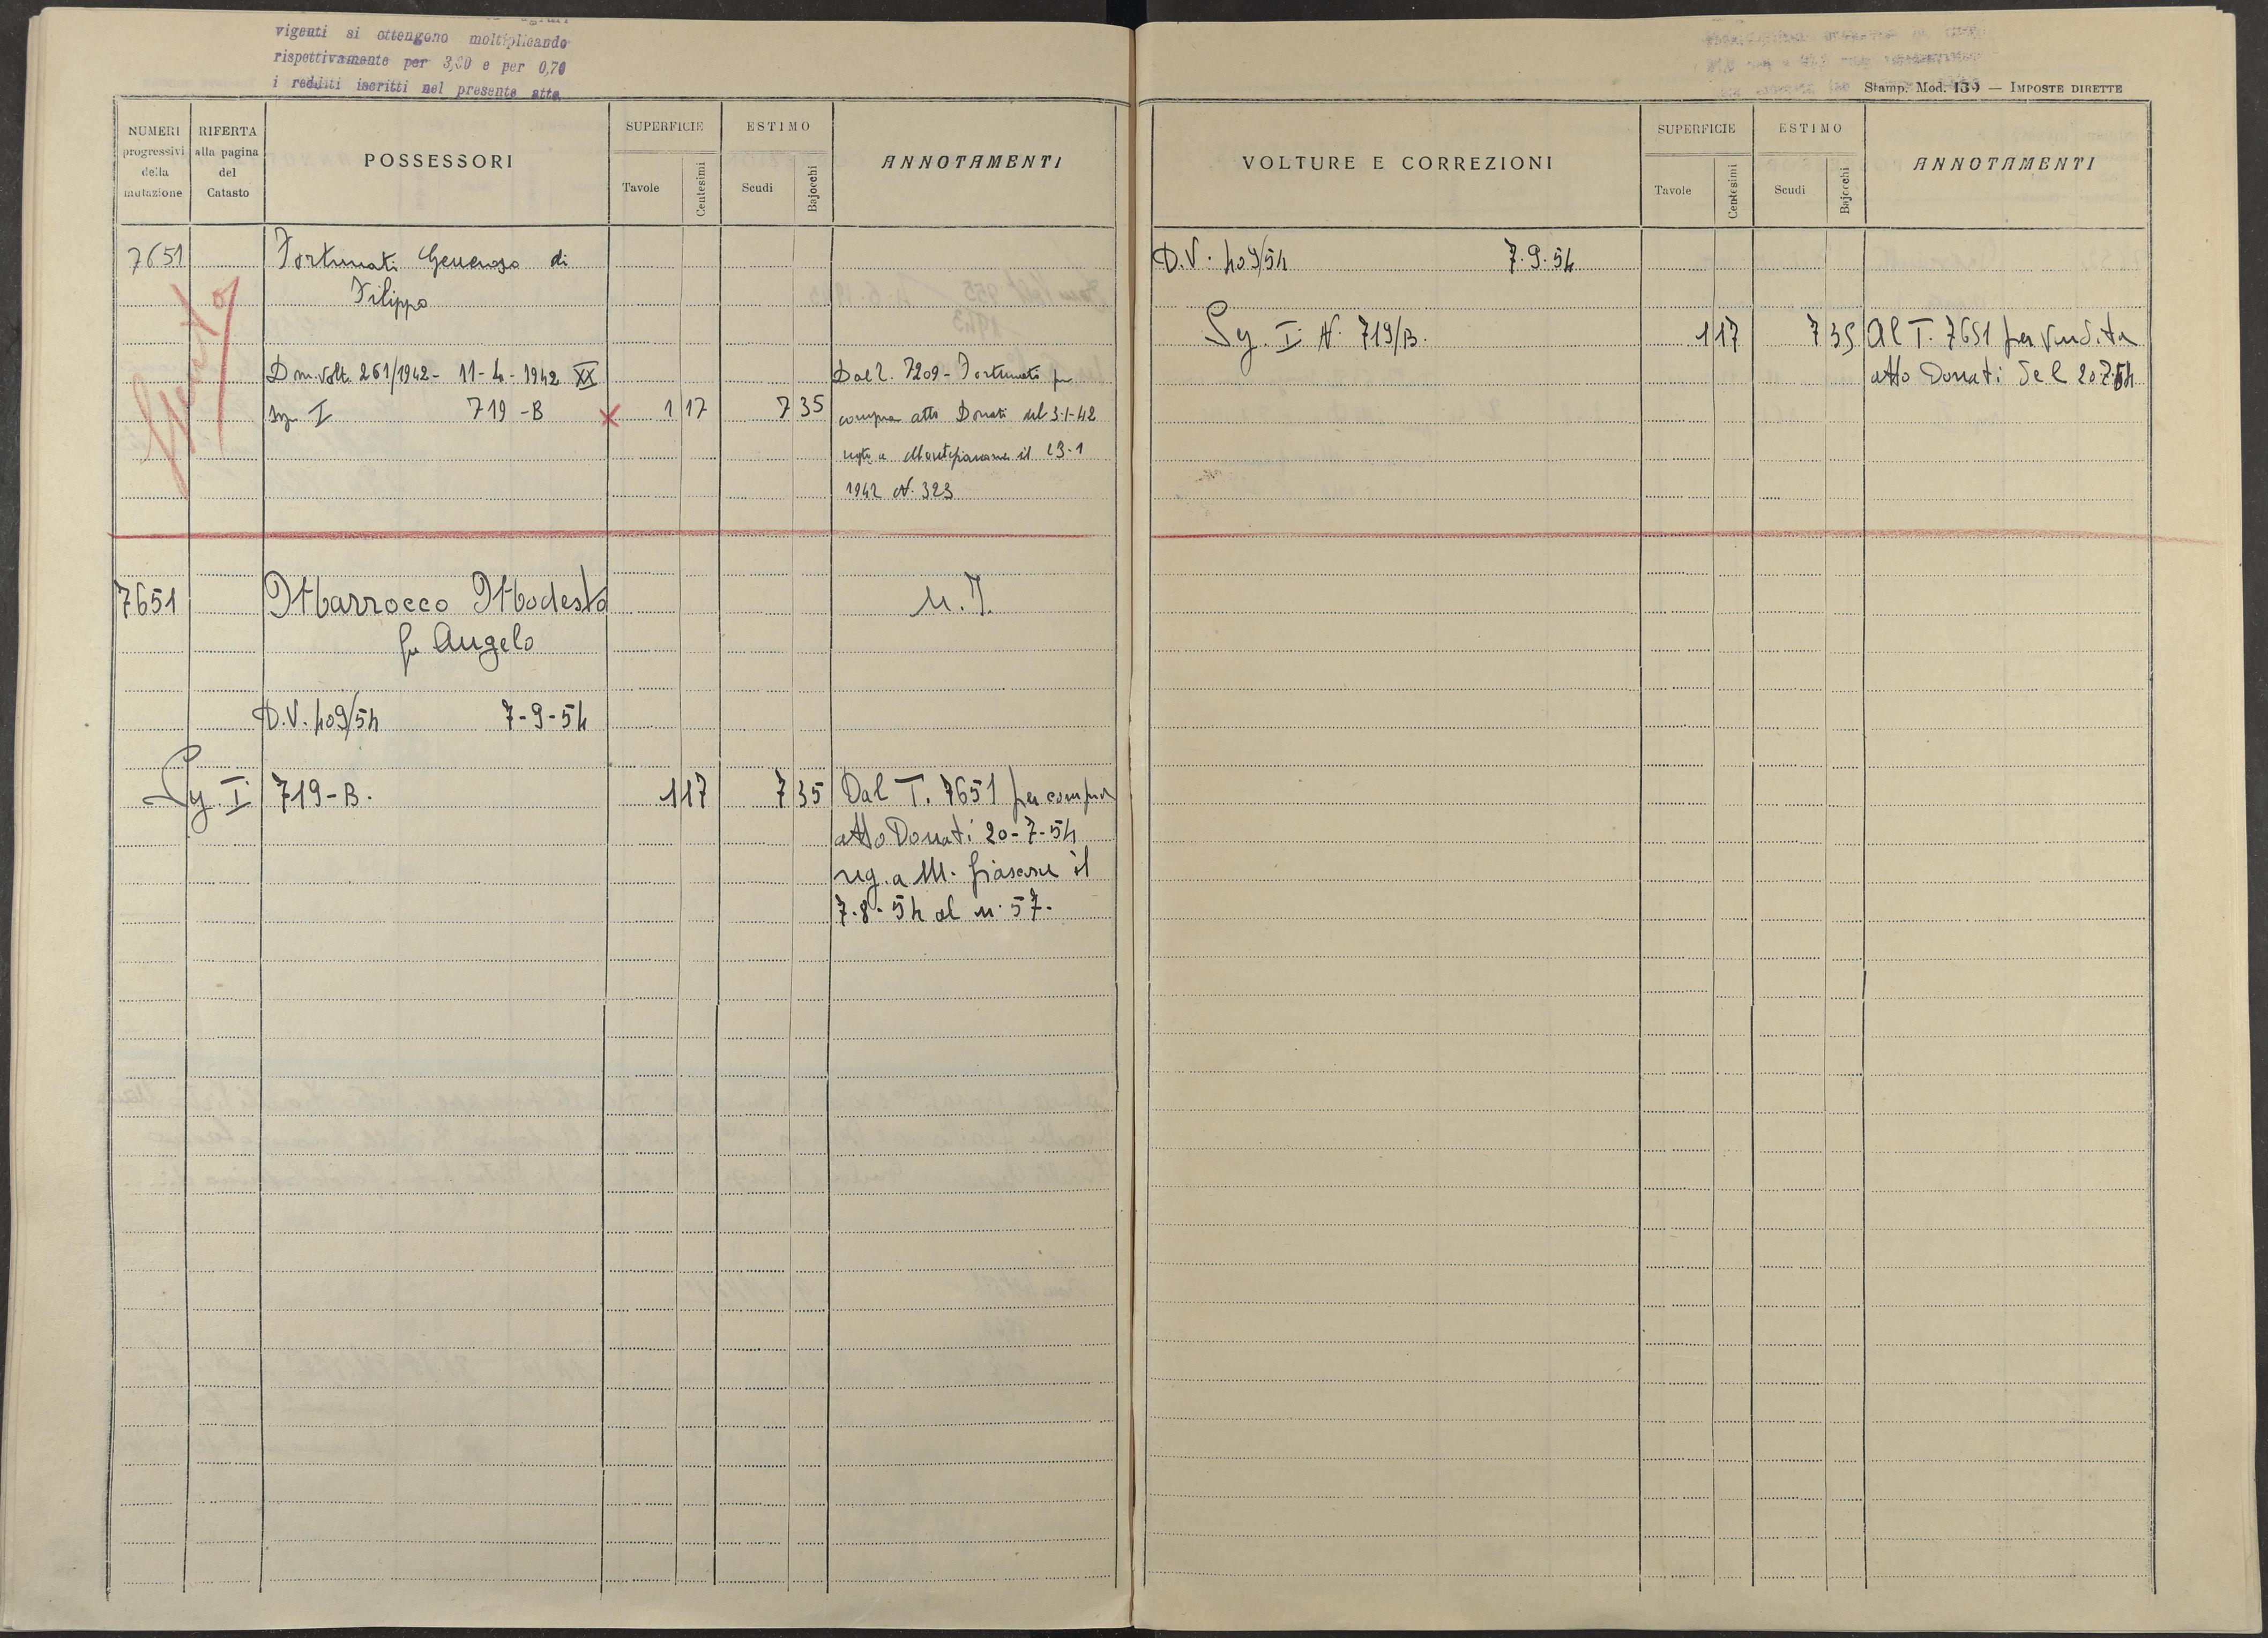 vigenti si ottengono moltiplicando
rispettivamente per 3,20 e per 0,70
i redditi iscritti nel presente atto
NUMERI progressivi della mutazione
RIFERTA alla pagina del Catasto
POSSESSORI
SUPERFICIE
Tavole
Centesimi
ESTIMO
Scudi
Bajocchi
ANNOTAMENTI
7651
Fortunati Generoso di
Filippo
Dom. Volt. 261/1942 - 11-4-1942 XX
Sez I 719-B 1 17 7 35
Dal T. 7209 - Fortunati per
compra atto Donati del 3-1-42
regto a Montefiascone il 23-1
1942 N. 323
7651
Marrocco Modesto
fu Angelo
M.T.
D.V. 409/54 7-9-54
Sez. I 719-B. 1 17 7 35
Dal T. 7651 per compra
atto Donati 20-7-54
reg. a M. fiascone il
7-8-54 al n. 57.
Stamp. Mod. 139 — IMPOSTE DIRETTE
VOLTURE E CORREZIONI
SUPERFICIE
Tavole
Centesimi
ESTIMO
Scudi
Bajocchi
ANNOTAMENTI
D.V. 409/54 7.9.54
Sez. I N. 719/B. 1 17 7 35
Al T. 7651 per vendita
atto Donati del 20.7.54